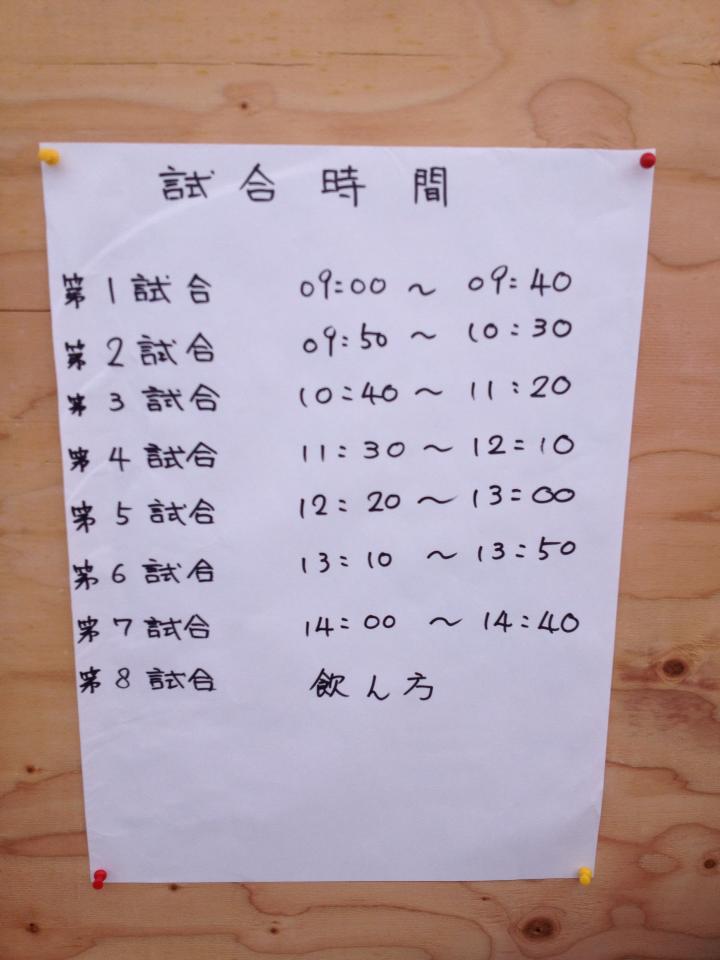 試合時間
第1試合 09:00 ～ 09:40
第2試合 09:50 ～ 10:30
第3試合 10:40 ～ 11:20
第4試合 11:30 ～ 12:10
第5試合 12:20 ～ 13:00
第6試合 13:10 ～ 13:50
第7試合 14:00 ～ 14:40
第8試合 飲ん方